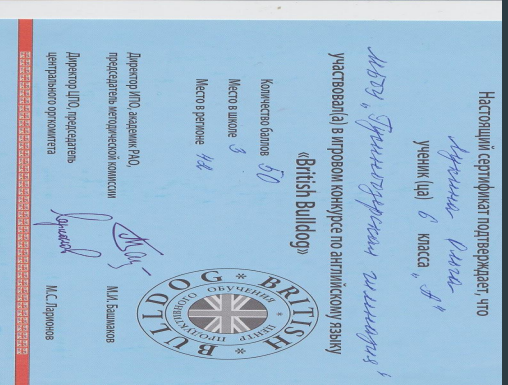 Настоящий сертификат подтверждает, что
Лукина
ученик (ца) 6 класса "А"
МБОУ гимназия
участвовал(а) в игровом конкурсе по английскому языку
«British Bulldog»
Количество баллов 50
Место в школе 3
Место в регионе 42
Директор ИПО, академик РАО,
председатель методической комиссии
М.И. Башмаков
Директор ЦПО, председатель
центрального оргкомитета
М.С. Ларионов
BRITISH * BULLDOG *
ЦЕНТР ПРОДУКТИВНОГО ОБУЧЕНИЯ